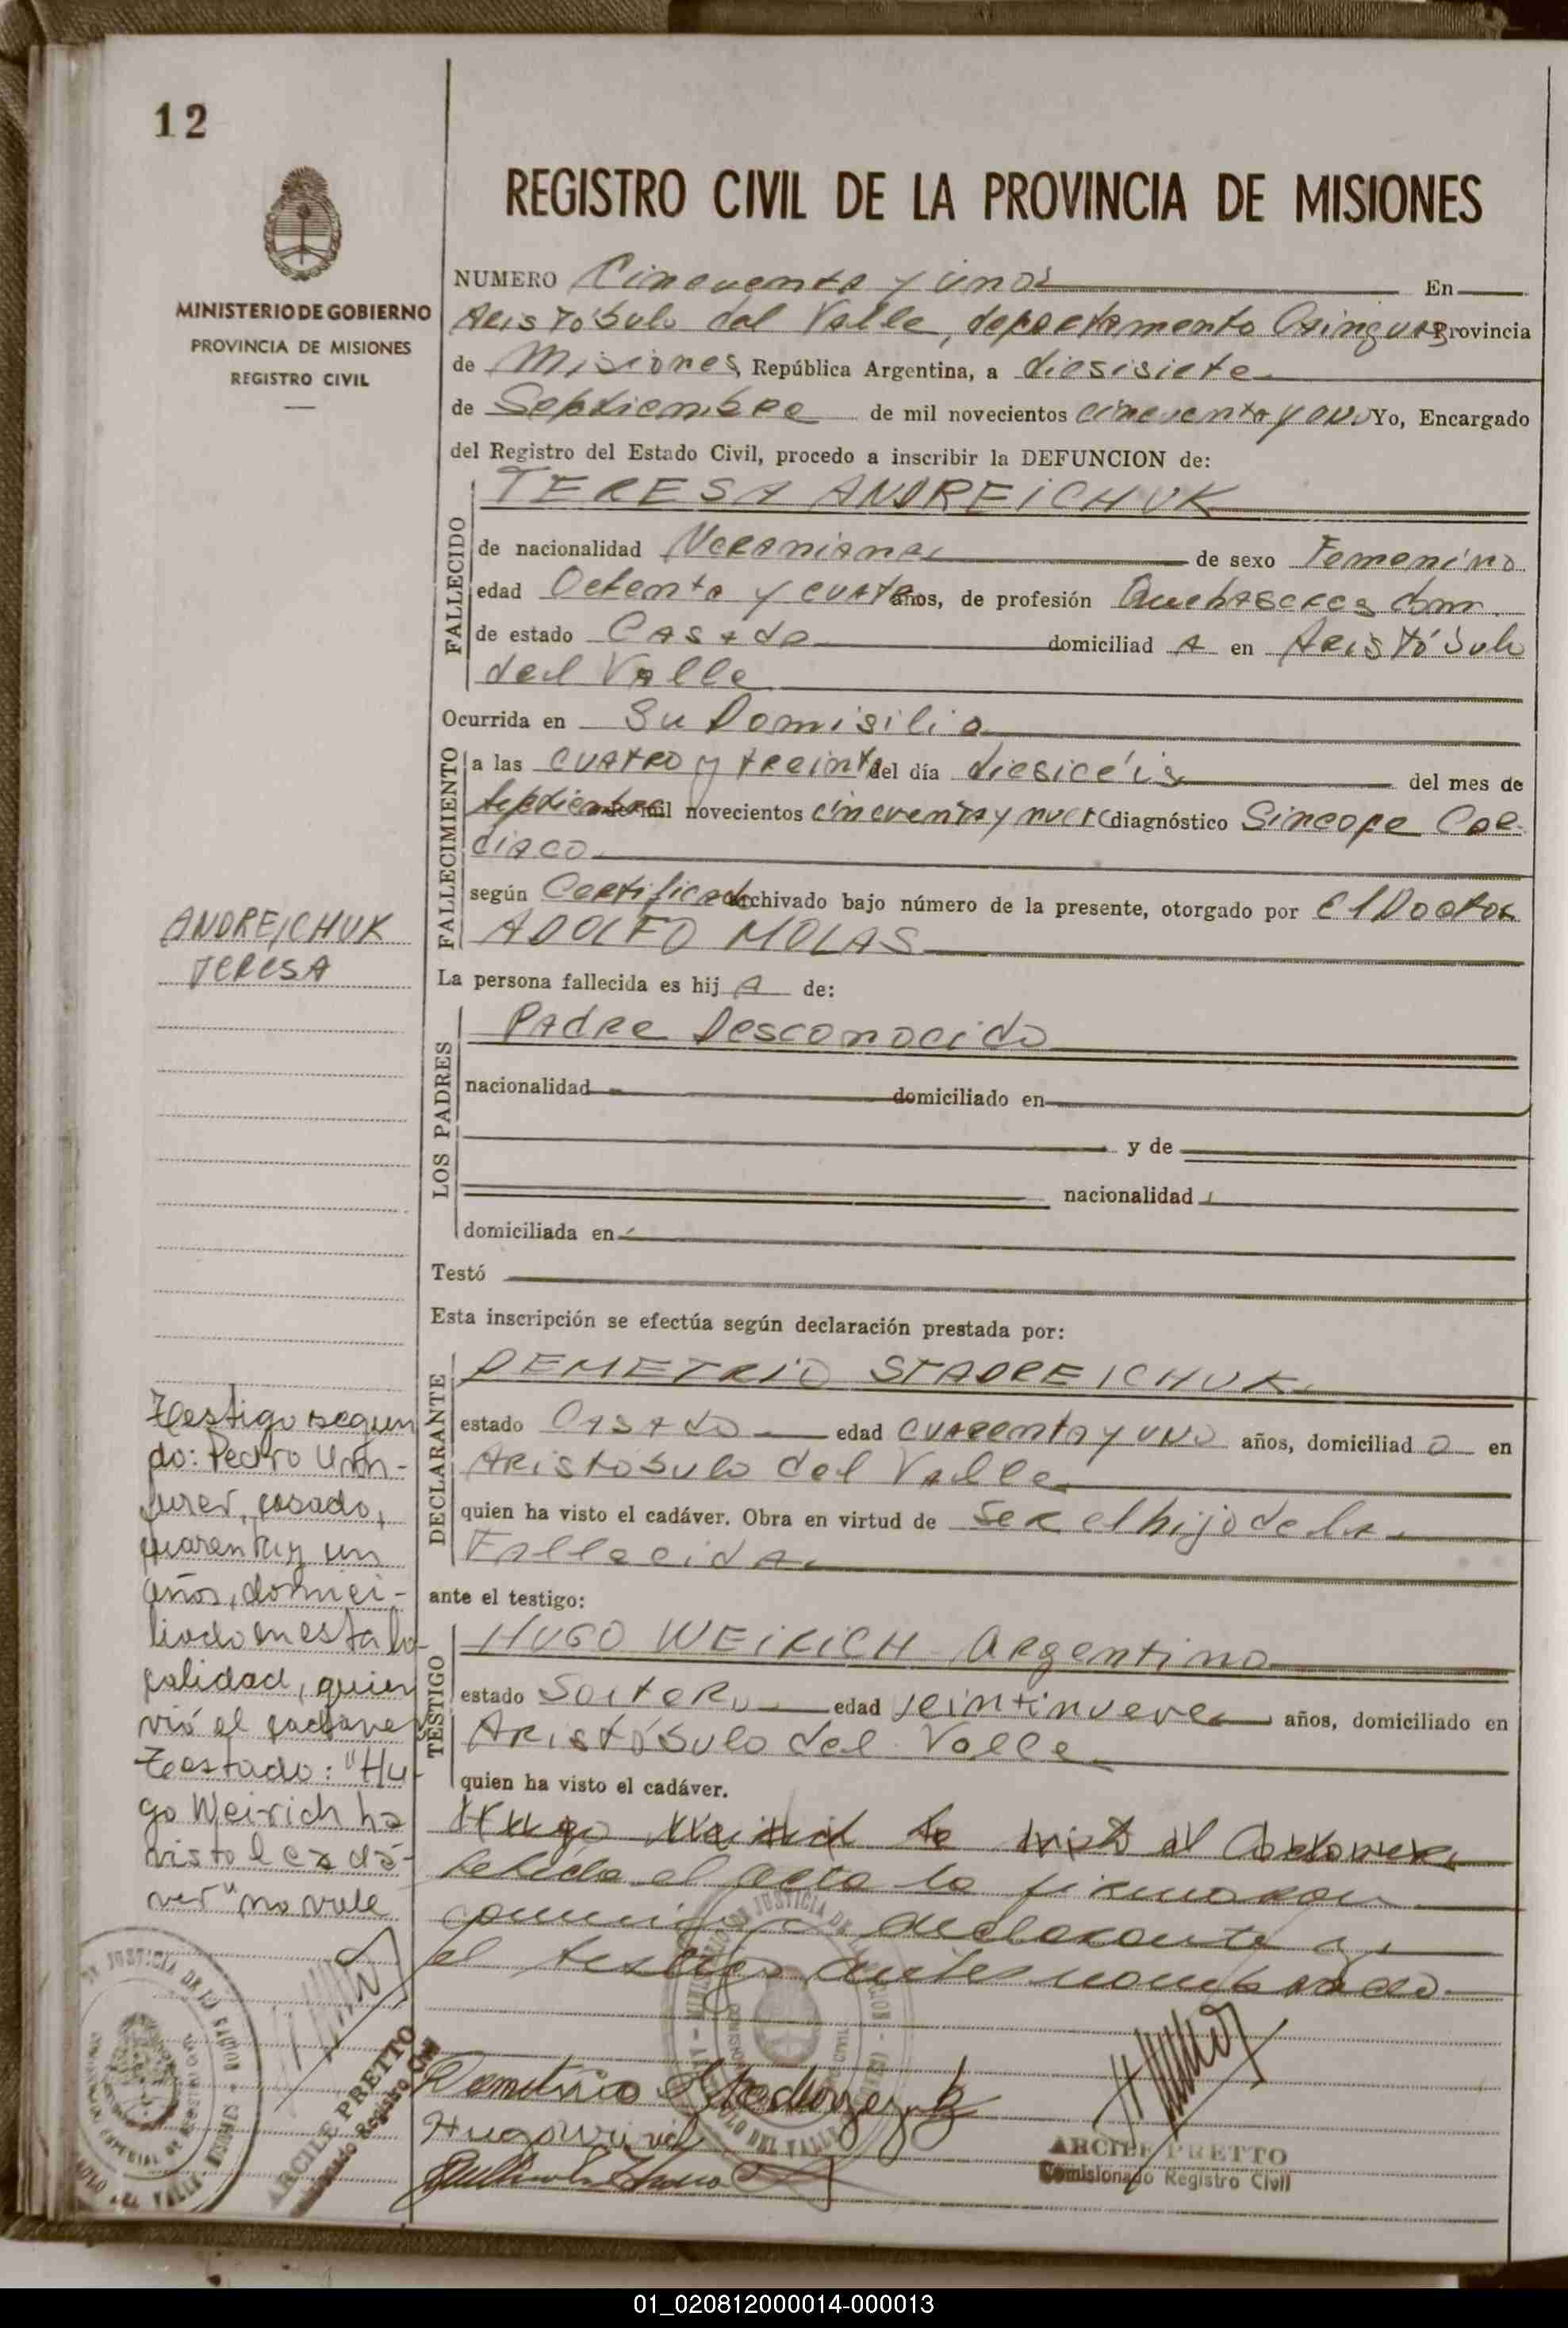 12
MINISTERIO DE GOBIERNO
PROVINCIA DE MISIONES
REGISTRO CIVIL
REGISTRO CIVIL DE LA PROVINCIA DE MISIONES
NUMERO Cincuenta y uno En
Aristóbulo del Valle, departamento Cainguas Provincia
de Misiones, República Argentina, a diesisiete
de Septiembre de mil novecientos cincuenta y Yo, Encargado
del Registro del Estado Civil, procedo a inscribir la DEFUNCION de:
TERESA ANDREICHUK
FALLECIDO
de nacionalidad Ucraniana de sexo Femenino
edad Ochenta y cuatro años, de profesión Quehaseres dom.
de estado Casada domiciliad A en Aristóbulo
del Valle
Ocurrida en Su Domisilio
FALLECIMIENTO
a las CUATRO y treinta del día diesiceis del mes de
septiembre mil novecientos cincuenta y nueve diagnóstico Sincope Car-
diaco
según Certificado archivado bajo número de la presente, otorgado por el Doctor
ADOLFO MOLAS
ANDREICHUK
TERESA
La persona fallecida es hij A de:
LOS PADRES
Padre Desconocido
nacionalidad domiciliado en
y de
nacionalidad
domiciliada en
Testó
Esta inscripción se efectúa según declaración prestada por:
DECLARANTE
DEMETRIO STADREICHUK
estado Casado edad cuarenta y uno años, domiciliad o en
Aristobulo del Valle
quien ha visto el cadáver. Obra en virtud de ser el hijo de la
Fallecida
ante el testigo:
TESTIGO
HUGO WEIRICH Argentino
estado Soltero edad veintinueve años, domiciliado en
Aristóbulo del Valle
quien ha visto el cadáver.
Hugo Weirich ha visto al Cadaver
Leida el acta la firmaron
conmigo declarante y
el testigo antes nombrado.
Testigo segun
do: Pedro
casado,
cuarenta y un
años, domici-
liado en esta lo-
calidad, quien
vió el cadaver
Testado: "Hu-
go Weirich ha
visto el cadá-
ver" no vale
Demetrio
Hugo Weirich
ARCILE PRETTO
Comisionado Registro Civil
ARCILE PRETTO
01_020812000014-000013